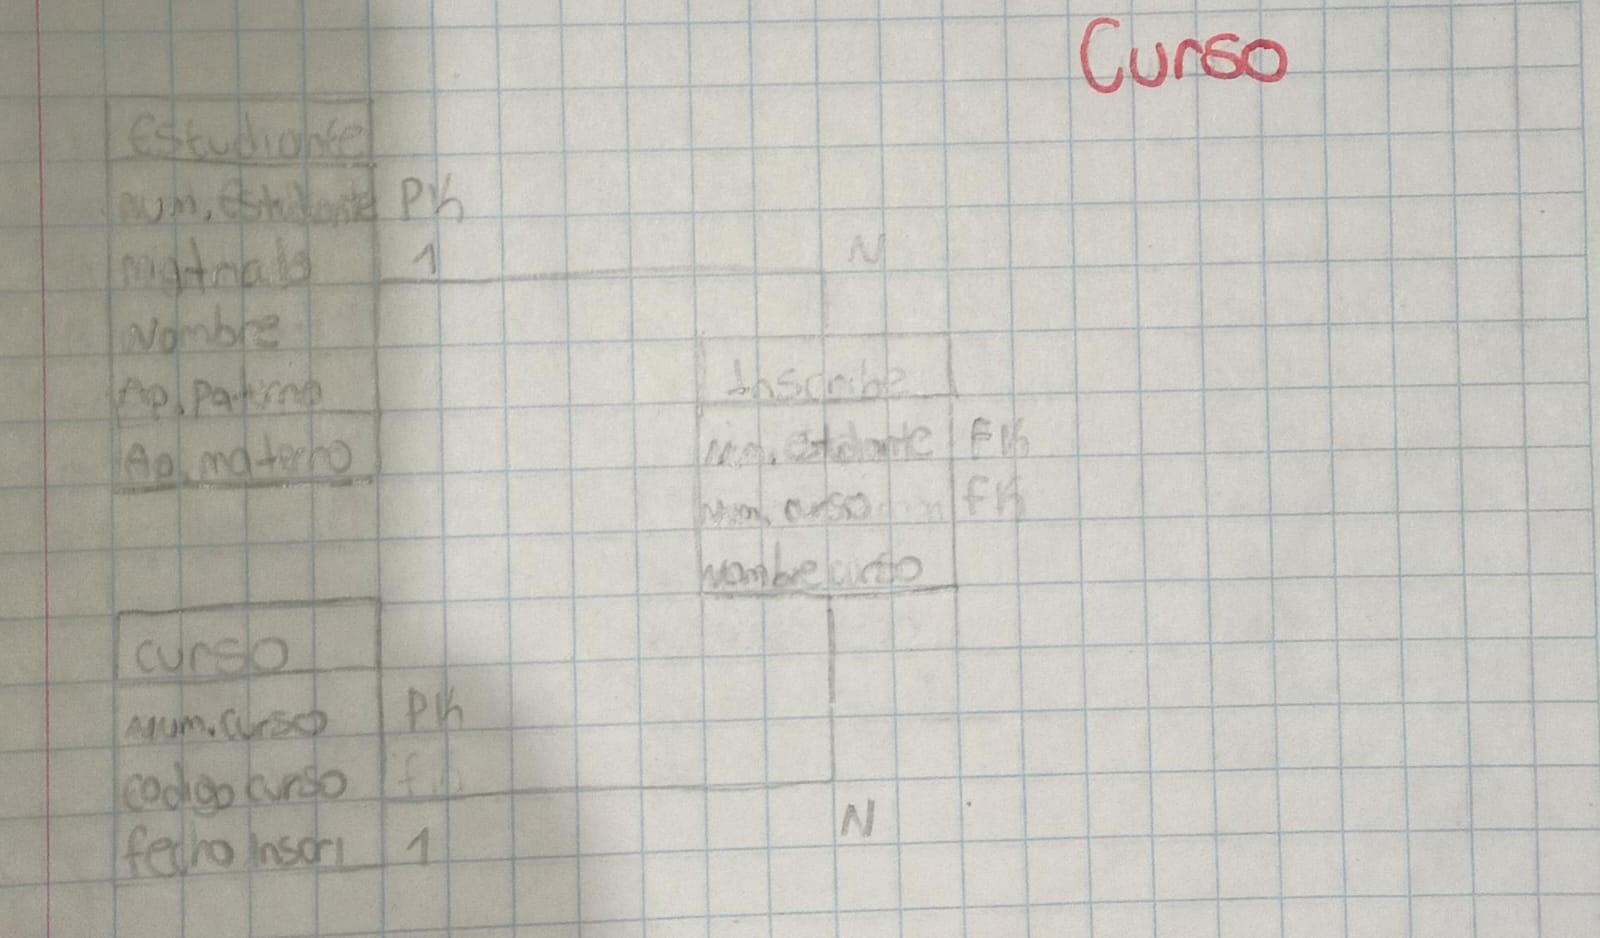 Curso
Estudiante
num. Estudiante PK
1
N
Nombre
Ap. Paterno
Ap. materno
Inscribe
FK
num. curso FK
Nombre curso
curso
num. curso PK
codigo curso
fecha Inscri 1
N